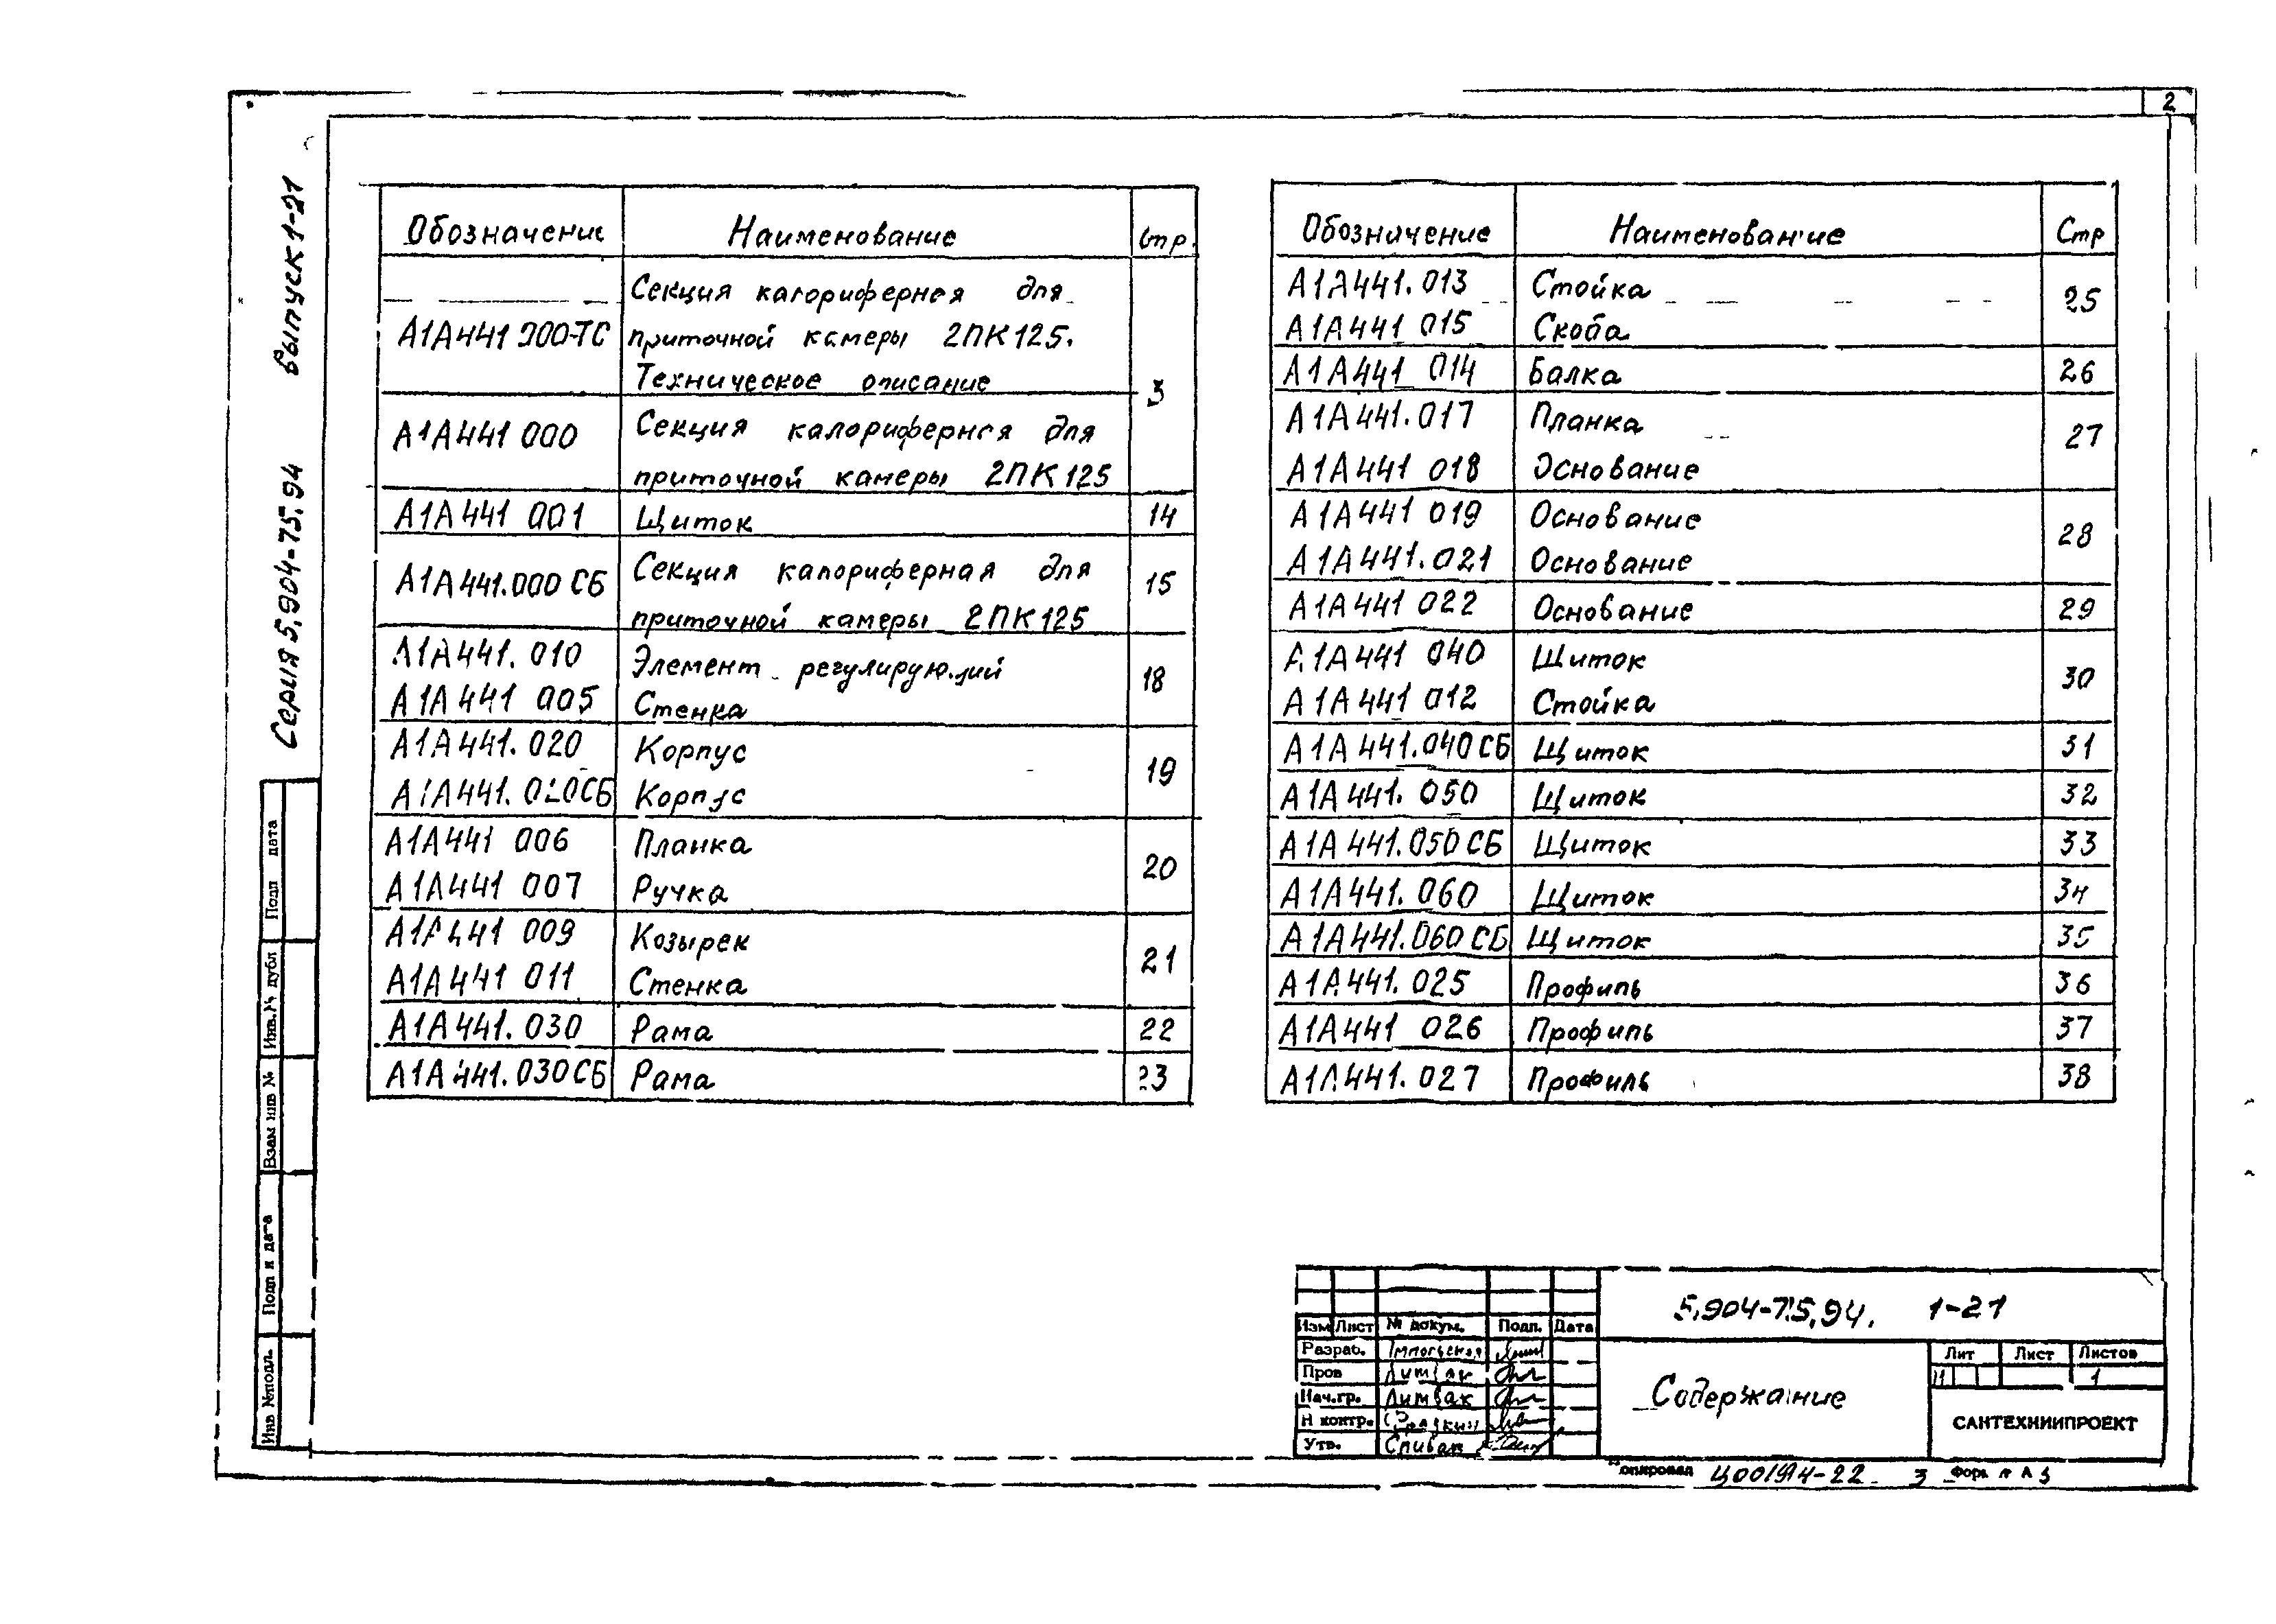 2
Серия 5.904-75.94 выпуск 1-21
Обозначение Наименование Стр.
А1А441 000-ТС Секция калориферная для
приточной камеры 2ПК125.
Техническое описание
3
А1А441 000 Секция калориферная для
приточной камеры 2ПК125
А1А441 001 Щиток 14
А1А441.000 СБ Секция калориферная для
приточной камеры 2ПК125
15
А1А441.010 Элемент регулирующий
А1А441 005 Стенка
18
А1А441.020 Корпус
А1А441.020СБ Корпус
19
А1А441 006 Планка
А1А441 007 Ручка
20
А1А441 009 Козырек
А1А441 011 Стенка
21
А1А441.030 Рама 22
А1А441.030СБ Рама 23
Обозначение Наименование Стр
А1А441.013 Стойка
А1А441 015 Скоба
25
А1А441 014 Балка 26
А1А441.017 Планка
А1А441 018 Основание
27
А1А441 019 Основание
А1А441.021 Основание
28
А1А441 022 Основание 29
А1А441 040 Щиток
А1А441 012 Стойка
30
А1А441.040СБ Щиток 31
А1А441.050 Щиток 32
А1А441.050СБ Щиток 33
А1А441.060 Щиток 34
А1А441.060СБ Щиток 35
А1А441.025 Профиль 36
А1А441 026 Профиль 37
А1А441.027 Профиль 38
Подп дата
Инв.№ дубл
Взам инв №
Подп и дата
Инв №подл.
5.904-75.94. 1-21
Изм Лист № докум. Подп. Дата
Разраб.
Пров Литвак
Нач.гр. Литвак
Н контр.
Утв. Спивак
Содержание
Лит Лист Листов
1
САНТЕХНИИПРОЕКТ
Копировал Ц00194-22 3 Формат А3